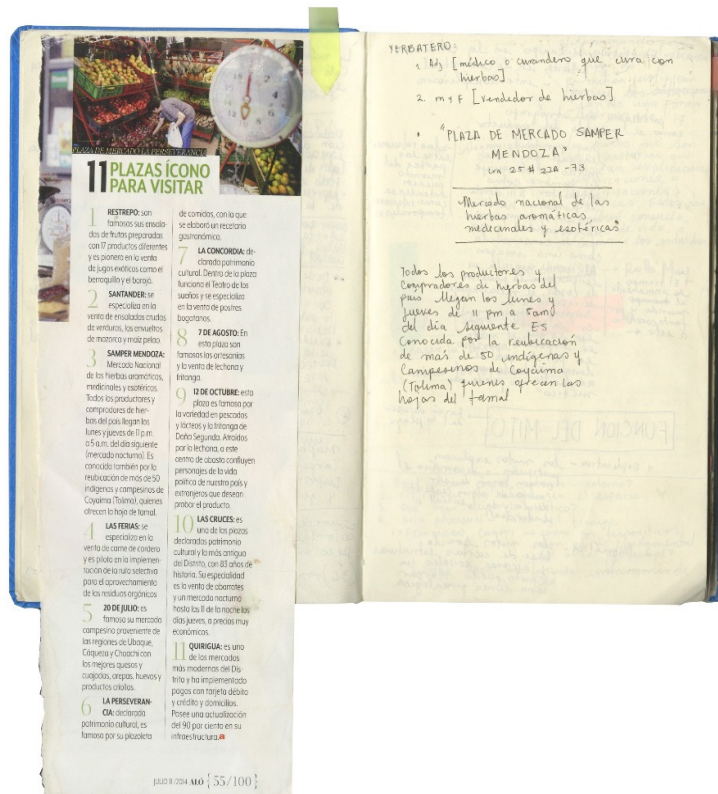 PLAZA DE MERCADO LA PERSEVERANCIA
11 PLAZAS ÍCONO
PARA VISITAR
1 RESTREPO: son
famosos sus ensala-
das de frutas preparadas
con 17 productos diferentes
y es pionero en la venta
de jugos exóticos como el
berraquillo y el borojó.
2 SANTANDER: se
especializa en la
venta de ensaladas crudas
de verduras, los envueltos
de mazorca y maíz pelao.
3 SAMPER MENDOZA:
Mercado Nacional
de las hierbas aromáticas,
medicinales y esotéricas.
Todos los productores y
compradores de hier-
bas del país llegan los
lunes y jueves de 11 p.m.
a 5 a.m. del día siguiente
(mercado nocturno). Es
conocida también por la
reubicación de más de 50
indígenas y campesinos de
Coyaima (Tolima), quienes
ofrecen la hoja de tamal.
4 LAS FERIAS: se
especializa en la
venta de carne de cordero
y es piloto en la implemen-
tación de la ruta selectiva
para el aprovechamiento
de los residuos orgánicos
5 20 DE JULIO: es
famoso su mercado
campesino proveniente de
las regiones de Ubaque,
Cáqueza y Choachí con
los mejores quesos y
cuajadas, arepas, huevos y
productos criollos.
6 LA PERSEVERAN-
CIA: declarada
patrimonio cultural, es
famosa por su plazoleta
de comidas, con la que
se elaboró un recetario
gastronómico.
7 LA CONCORDIA: de-
clarada patrimonio
cultural. Dentro de la plaza
funciona el Teatro de los
sueños y se especializa
en la venta de postres
bogotanos.
8 7 DE AGOSTO: En
esta plaza son
famosas las artesanías
y la venta de lechona y
fritanga.
9 12 DE OCTUBRE: esta
plaza es famosa por
la variedad en pescados
y lácteos y la fritanga de
Doña Segunda. Atraídos
por la lechona, a este
centro de abasto confluyen
personajes de la vida
política de nuestro país y
extranjeros que desean
probar el producto.
10 LAS CRUCES: es
una de las plazas
declaradas patrimonio
cultural y la más antigua
del Distrito, con 83 años de
historia. Su especialidad
es la venta de abarrotes
y un mercado nocturno
hasta las 11 de la noche los
días jueves, a precios muy
económicos.
11 QUIRIGUA: es uno
de los mercados
más modernos del Dis-
trito y ha implementado
pagos con tarjeta débito
y crédito y domicilios.
Posee una actualización
del 90 por ciento en su
infraestructura.
JULIO 11 /2014 ALÓ { 55/100 }
YERBATERO
1. Adj [médico o curandero que cura con
hierbas]
2. m y f [vendedor de hierbas]
"PLAZA DE MERCADO SAMPER
MENDOZA"
cra 25 # 22A -73
Mercado nacional de las
hierbas aromáticas,
medicinales y esotéricas"
Todos los productores y
compradores de hierbas del
país llegan los lunes y
jueves de 11 pm a 5am
del día siguiente Es
conocida por la reubicación
de más de 50 indígenas y
campesinos de Coyaima
(Tolima) quienes ofrecen las
hojas del tamal
FUNCION DEL MITO